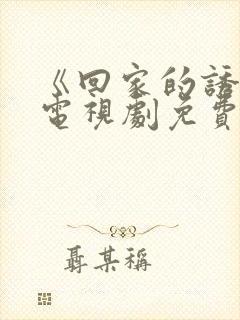 《回家的誘
電視劇免費
聶某稱